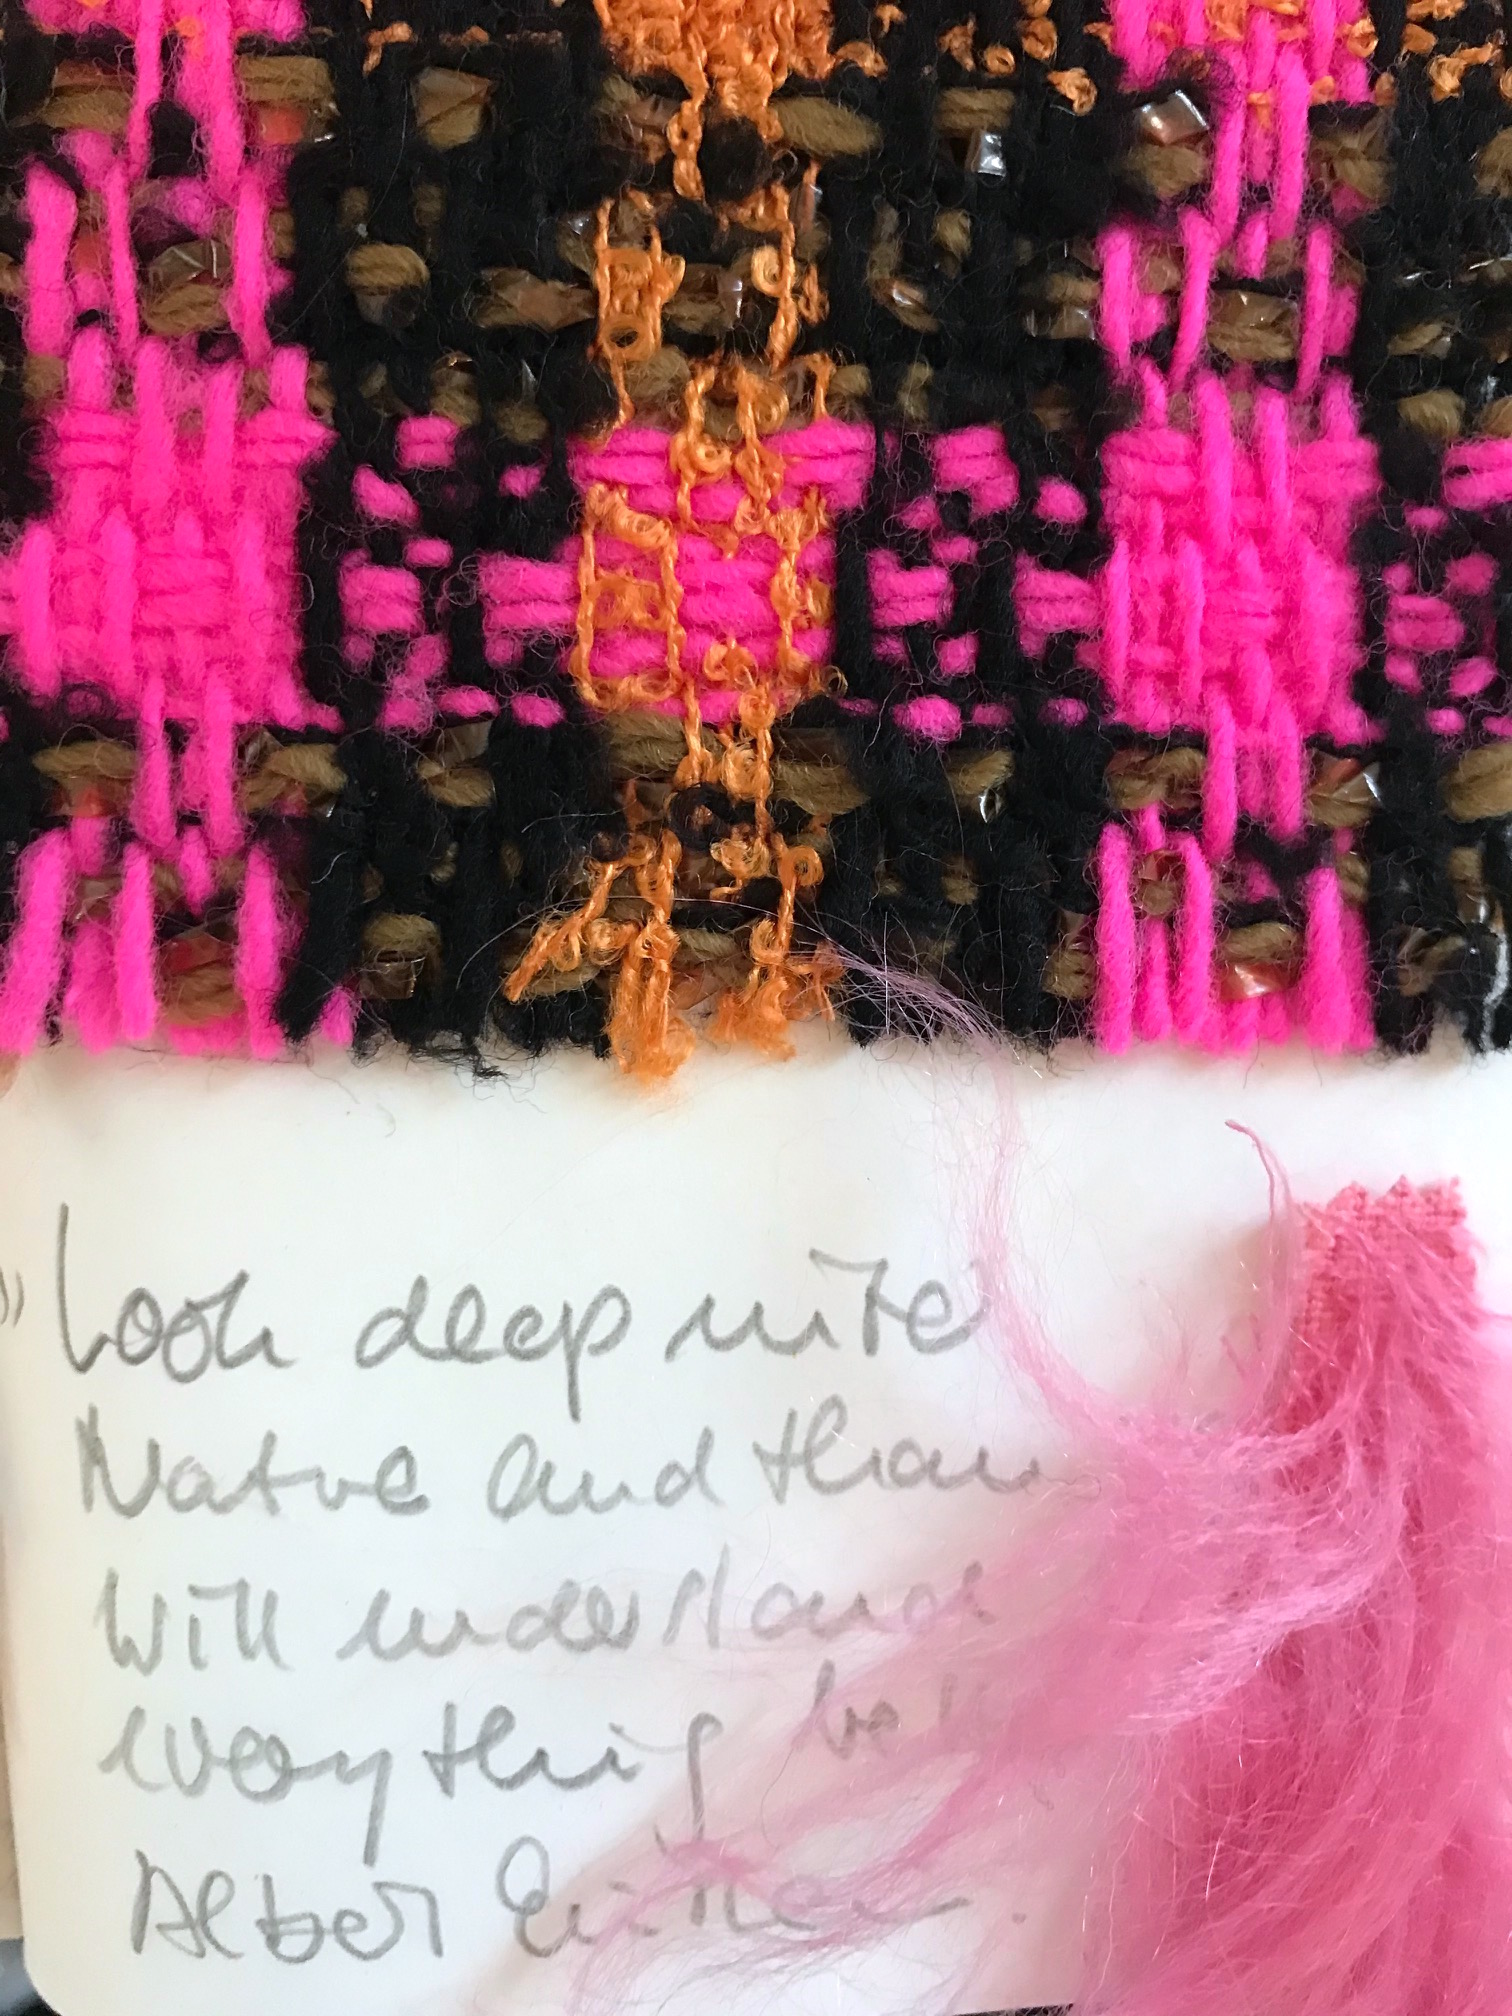 "Look deep into
Nature and than
will understand
everything bett
Albert Einstein.